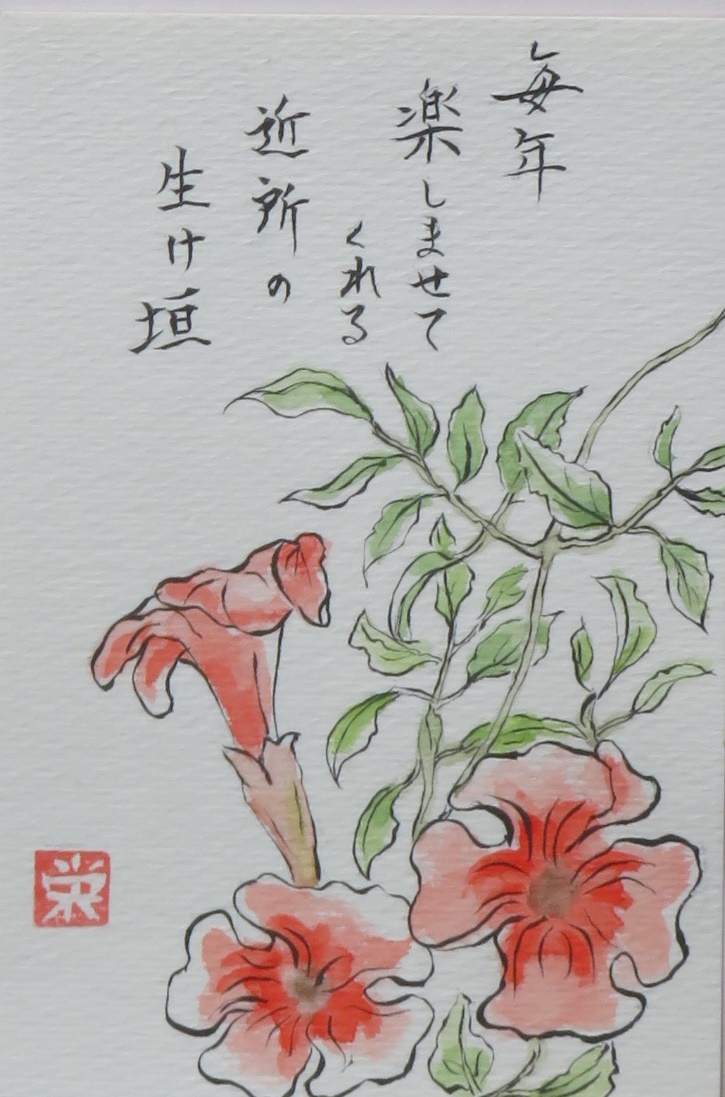 毎年
楽しませて
くれる
近所の
生け垣
栄